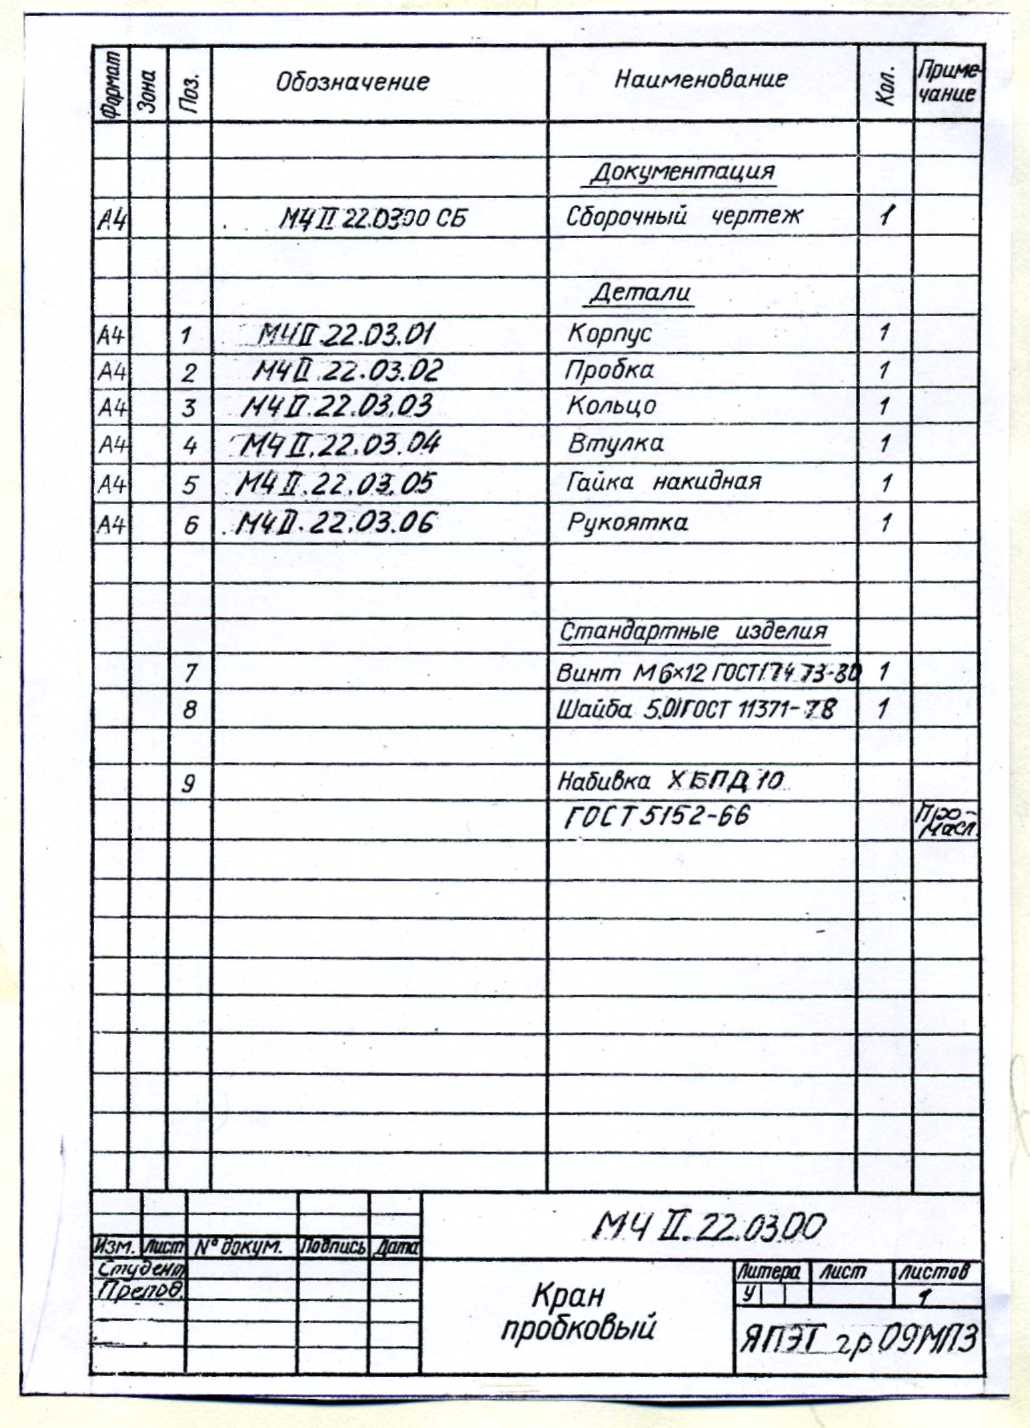 Формат Зона Поз. Обозначение Наименование Кол. Приме-
чание
Документация
А4 МЧ II 22.0300 СБ Сборочный чертеж 1
Детали
А4 1 МЧ II.22.03.01 Корпус 1
А4 2 МЧ II.22.03.02 Пробка 1
А4 3 МЧ II.22.03.03 Кольцо 1
А4 4 МЧ II.22.03.04 Втулка 1
А4 5 МЧ II.22.03.05 Гайка накидная 1
А4 6 МЧ II.22.03.06 Рукоятка 1
Стандартные изделия
7 Винт М6×12 ГОСТ 17473-80 1
8 Шайба 5.01 ГОСТ 11371-78 1
9 Набивка ХБПД 10
ГОСТ 5152-66 Про-
масл.
МЧ II.22.0300
Изм. Лист № докум. Подпись Дата
Студент
Препод.
Кран
пробковый
Литера Лист Листов
У 1
ЯПЭТ гр 09МПЗ